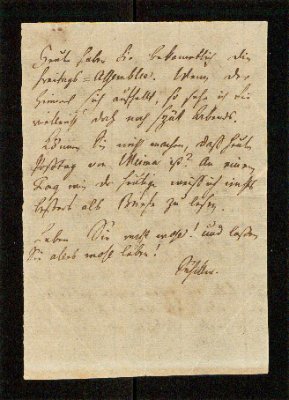 Heute haben Sie bekanntlich die
Freitags=Assemblee. Wenn der
Himmel sich aufhellt, so sehe ich Sie
vielleicht doch noch spät Abends.
Können Sie noch machen, daß heute
Posttag von ist? An einem
Tag wie der heutige weiß ich nichts
bessers als Briefe zu lesen.
Leben Sie recht wohl! und lassen
Sie alles wohl leben!